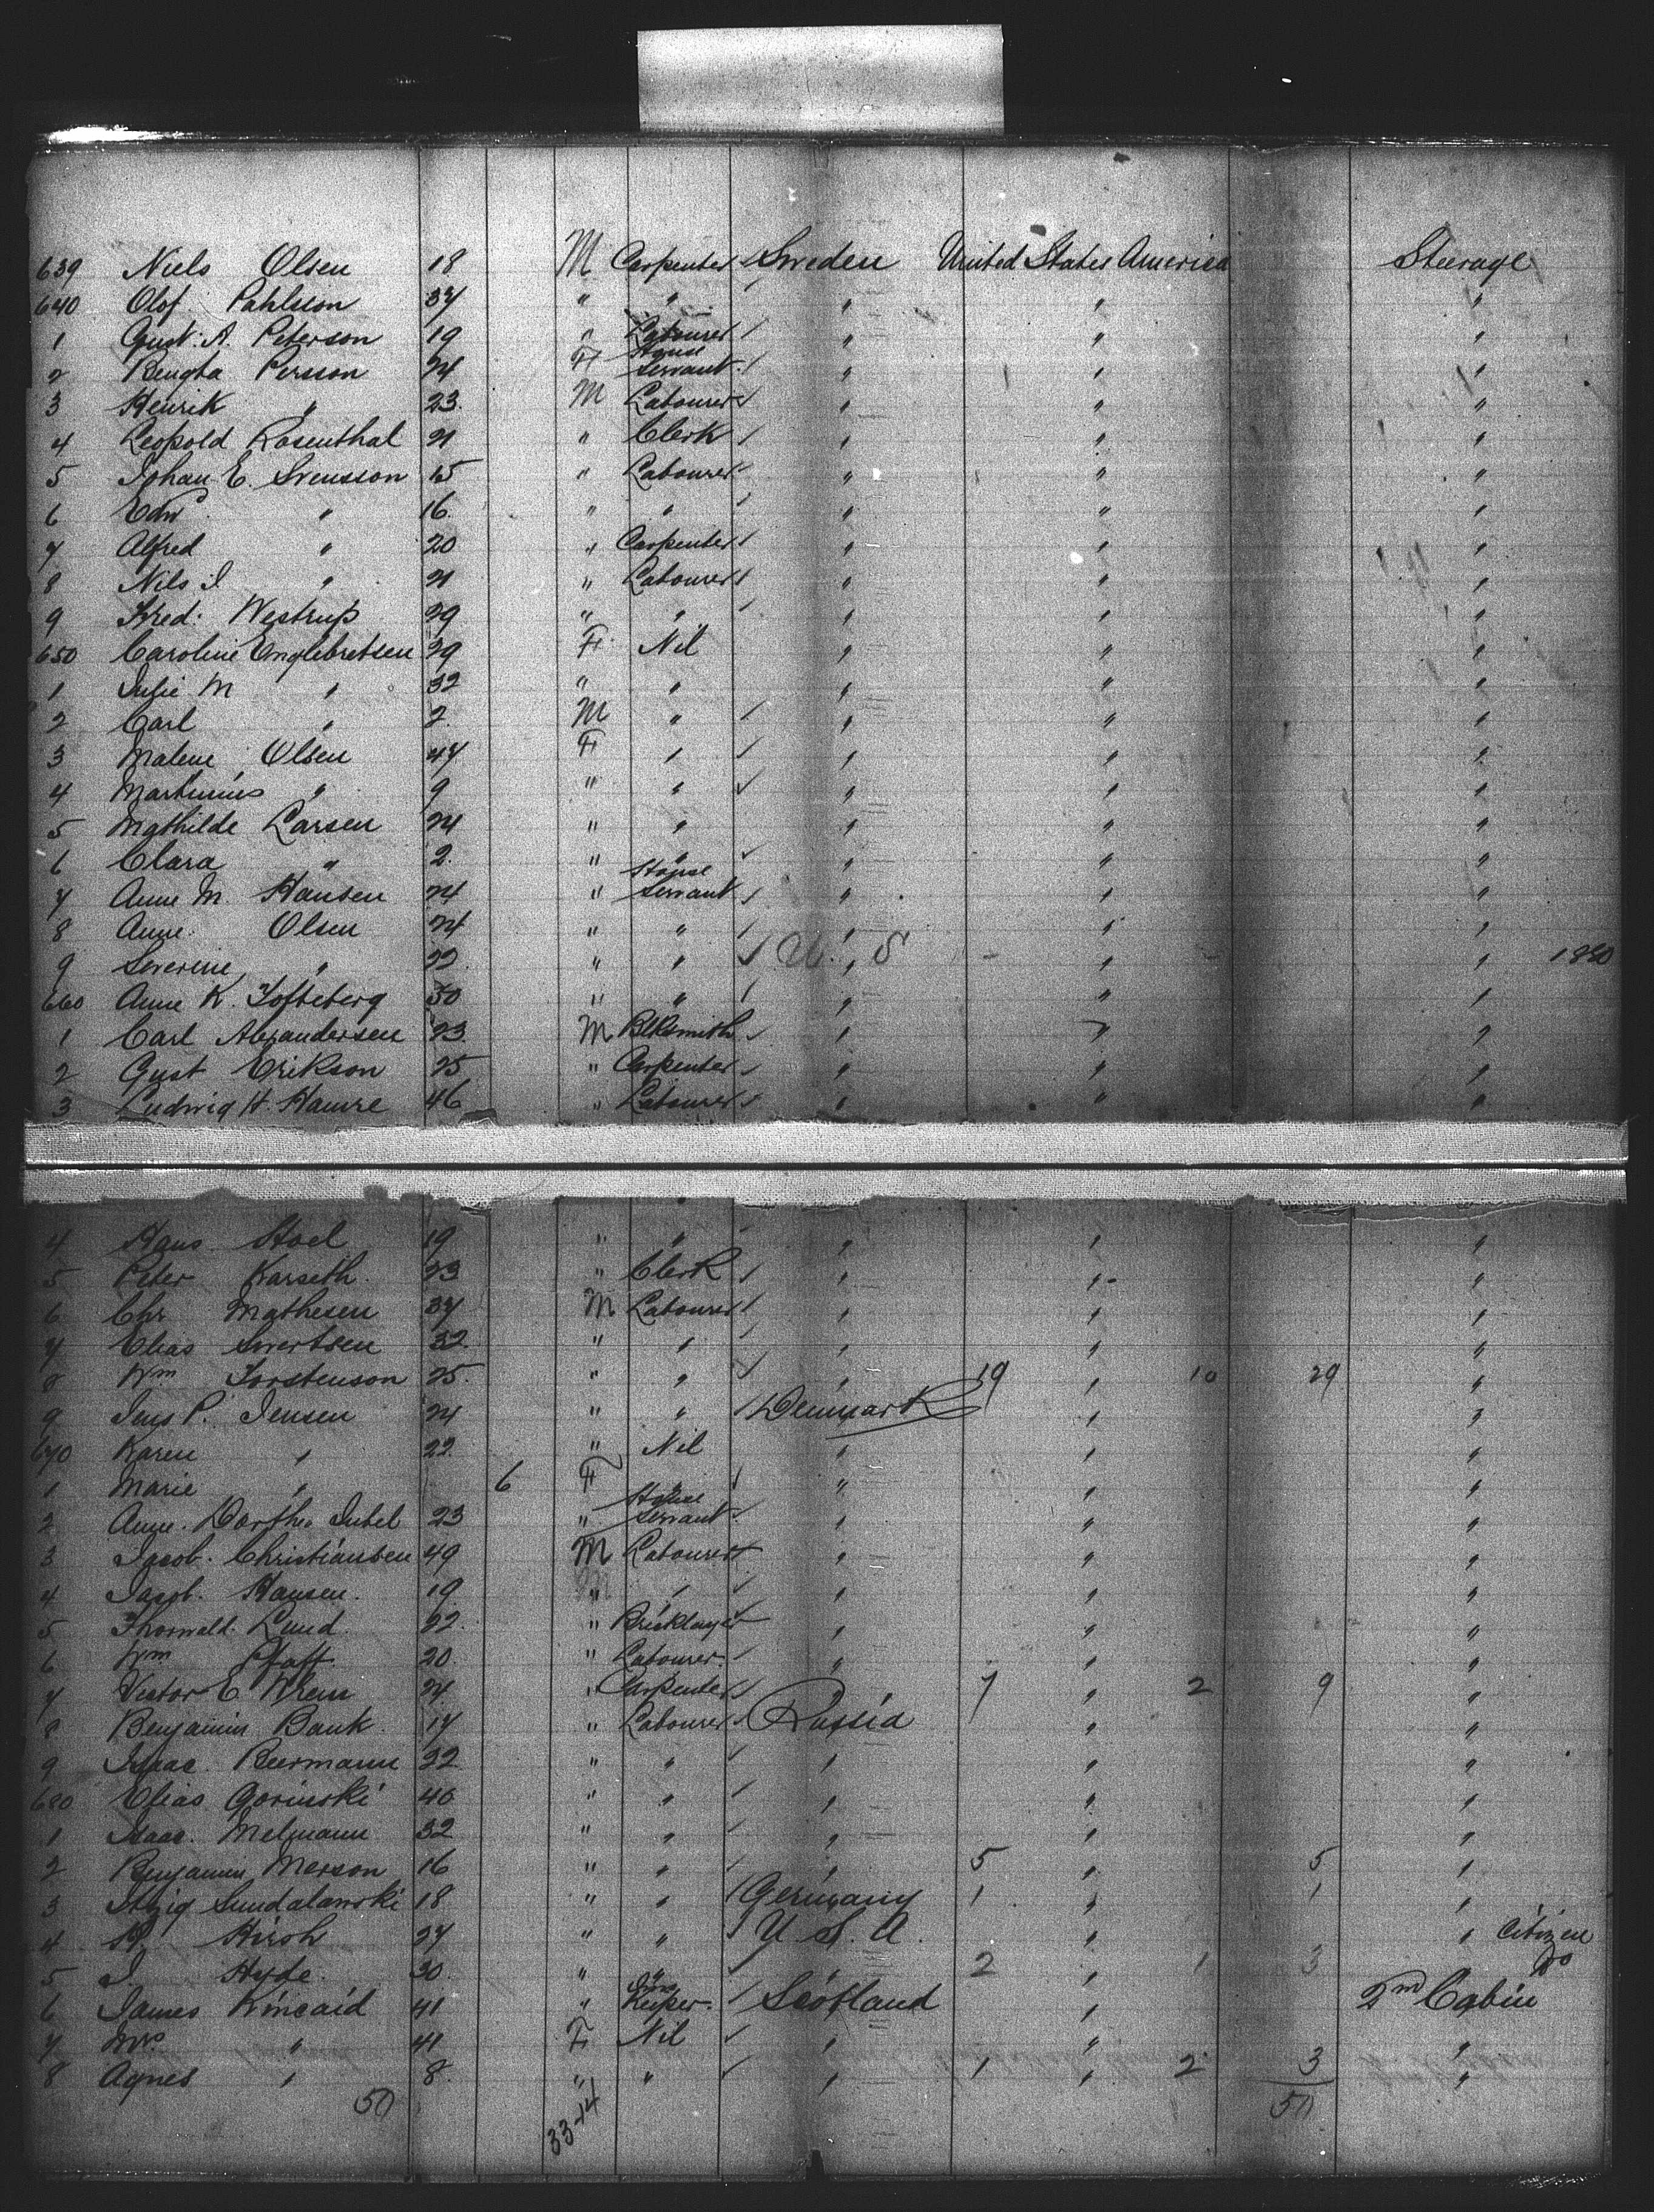 639 Niels Olsen 18 M Carpenter Sweden United States America Steerage
640 Olof Pahlsson 37 " " " " "
1 Gust. A. Peterson 19 " Labourer " " "
2 Bengta Persson 24 F House Servant " " "
3 Henrik " 23 M Labourer " " "
4 Leopold Rosenthal 21 " Clerk " " "
5 Johan E. Svensson 15 " Labourer " " "
6 Edw " 16 " " " " "
7 Alfred " 20 " Carpenter " " "
8 Nils J " 21 " Labourer " " "
9 Fred: Westrup 29 " " " " "
650 Caroline Englebretsen 39 F Nil " " "
1 Julie M " 32 " " " " "
2 Carl " 2 M " " " "
3 Malene Olsen 47 F " " " "
4 Martinius " 9 " " " " "
5 Mathilde Larsen 24 " " " " "
6 Clara " 2 " " " " "
7 Anne M. Hansen 24 " House Servant " " "
8 Anne Olsen 24 " " " " "
9 Severine " 22 " " U. S " " 1880
660 Anne K. Tofteberg 30 " " " " "
1 Carl Alexandersen 23 M Blksmith " " "
2 Gust Erikson 25 " Carpenter " " "
3 Ludwig H. Hamre 46 " Labourer " " "
4 Hans Stoel 19 " " " " "
5 Peter Karseth 23 " Clerk " " "
6 Chr Mathesen 37 M Labourer " " "
7 Elias Sivertsen 32 " " " " "
8 Wm Torstenson 25 " " " 19 " 10 29 "
9 Jens P. Jensen 24 " " Denmark " "
670 Karen " 22 " Nil " " "
1 Marie " 6 F " " " "
2 Anne Dorthe Jubel 23 " House Servant " " "
3 Jacob Christiansen 49 M Labourer " " "
4 Jacob Hansen 19 " " " " "
5 Thorwald Lund 22 " Bricklayer " " "
6 Wm Pfaff 20 " Labourer " " "
7 Victor E 21 " Carpenter 7 " 2 9 "
8 Benjamin Bank 17 " Labourer Russia " "
9 Isaac Beermann 22 " " " " "
680 Elias Gorinski 40 " " " " "
1 Isaac Melmann 32 " " " " "
2 Benjamin Merson 16 " " " 5 " 5 "
3 Itzig Sundalawski 18 " " Germany 1 " 1 "
4 H Hirsh 27 " " U. S. A. " " Citizen
5 J. Hyde 30 " " 2 " 1 3 Do
6 James Kincaid 41 " Keeper Scotland " 2nd Cabin
7 Mrs " 41 F Nil " " "
8 Agnes " 8 " " " 1 " 2 3 "
50 33-14 50